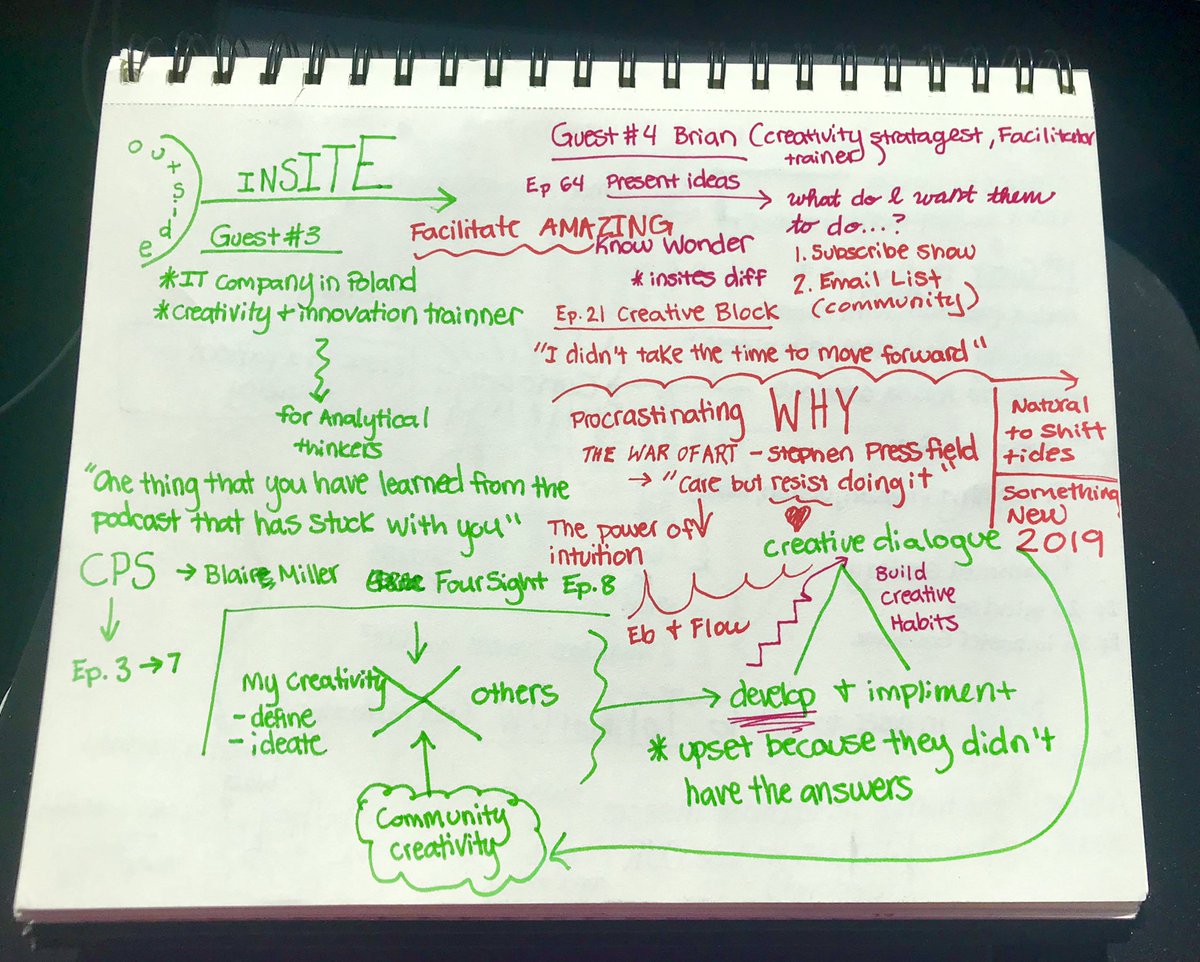 outside
INSITE
Guest #3
*IT Company in Poland
*creativity + innovation trainner
for Analytical
thinkers
"One thing that you have learned from the
podcast that has stuck with you"
CPS → Blaire Miller FourSight Ep. 8
Ep. 3 → 7
My creativity
- define
- ideate
others
Community
creativity
Guest #4 Brian (creativity stratagest, Facilitator
trainer)
Ep 64 Present ideas
what do I want them
to do...?
1. Subscribe show
2. Email List
(community)
Facilitate AMAZING
Know Wonder
* insites diff
Ep. 21 Creative Block
"I didn't take the time to move forward"
Procrastinating WHY
THE WAR OF ART - Stephen Pressfield
→ "care but resist doing it"
Natural
to shift
tides
Something
New
2019
The power of
intuition
creative dialogue
Eb + Flow
Build
Creative
Habits
develop + impliment
* upset because they didn't
have the answers